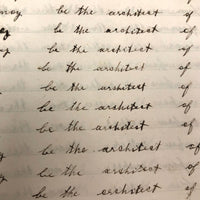 may be the architect of
be the architect of
y be the architect of
be the architect of
be the architect of
be the architect of
be the architect of
be the architect of
be the architect of